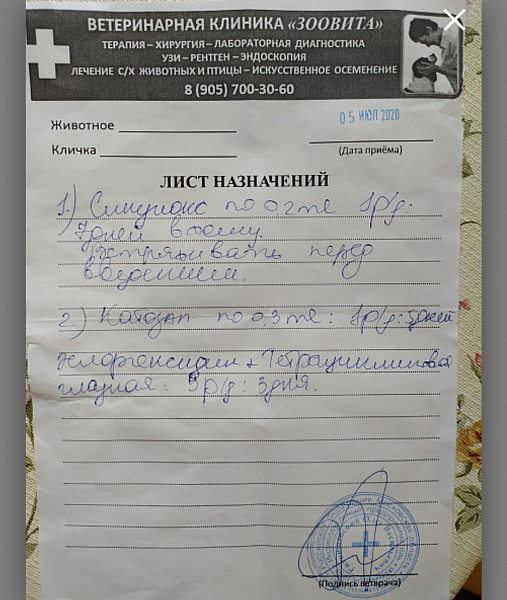 ВЕТЕРИНАРНАЯ КЛИНИКА «ЗООВИТА»
ТЕРАПИЯ – ХИРУРГИЯ – ЛАБОРАТОРНАЯ ДИАГНОСТИКА
УЗИ – РЕНТГЕН – ЭНДОСКОПИЯ
ЛЕЧЕНИЕ С/Х ЖИВОТНЫХ И ПТИЦЫ – ИСКУССТВЕННОЕ ОСЕМЕНЕНИЕ
8 (905) 700-30-60
05 ИЮЛ 2020
Животное
Кличка
(Дата приёма)
ЛИСТ НАЗНАЧЕНИЙ
1.) по 0,2 мл 1р/д:
7 дней в
Встряхивать перед
введением.
2.) Катозал по 0.3 мл: 1р/д: 5 дней
Хлоргексидин + Тетрациклиновая
глазная: 3 р/д: 3 дня.
(Подпись ветврача)